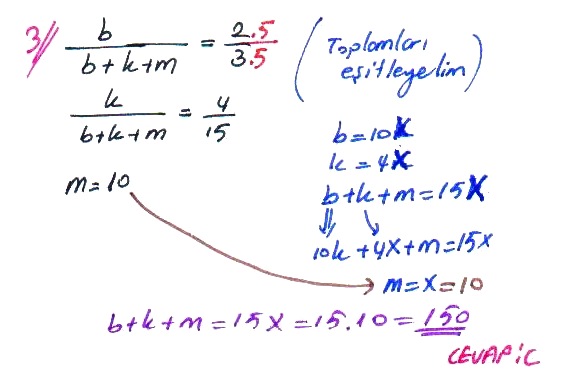 3// b / (b+k+m) = 2.5 / 3.5 (Toplamları eşitleyelim)
k / (b+k+m) = 4 / 15
b=10x
k=4x
m=10
b+k+m=15x
10k+4x+m=15x
m=x=10
b+k+m=15x=15.10=150
CEVAP:C